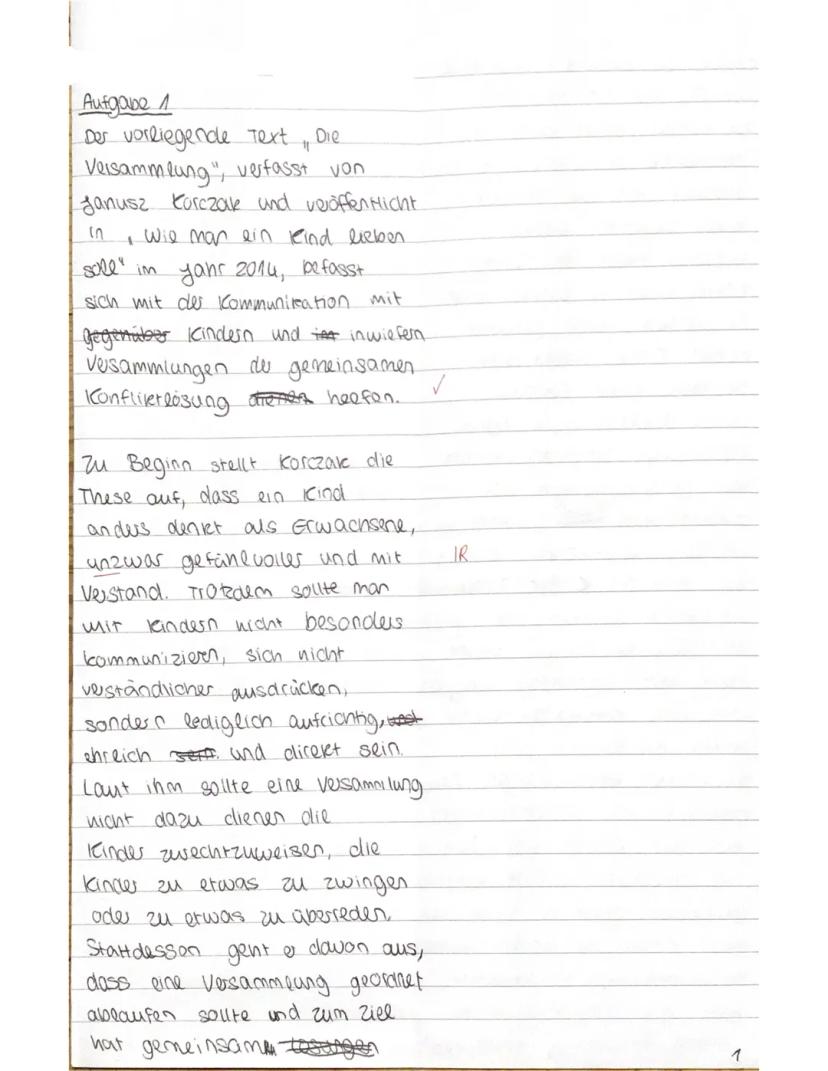 Aufgabe 1
Der vorliegende Text „Die
Versammlung", verfasst von
Janusz Korczak und veröffentlicht
in „Wie man ein Kind lieben
soll" im Jahr 2014, befasst
sich mit der Kommunikation mit
gegenüber Kindern und inwiefern
Versammlungen der gemeinsamen
Konfliktlösung dienen helfen. ✓
Zu Beginn stellt Korczak die
These auf, dass ein Kind
anders denkt als Erwachsene,
unzwar gefühlvoller und mit IR
Verstand. Trotzdem sollte man
mit Kindern nicht besonders
kommunizieren, sich nicht
verständlicher ausdrücken,
sondern lediglich aufrichtig, und
ehrlich sein. und direkt sein.
Laut ihm sollte eine Versammlung
nicht dazu dienen die
Kinder zurechtzuweisen, die
Kinder zu etwas zu zwingen
oder zu etwas zu überreden.
Stattdessen geht er davon aus,
dass eine Versammlung geordnet
ablaufen sollte und zum Ziel
hat gemeinsam Lösungen
1